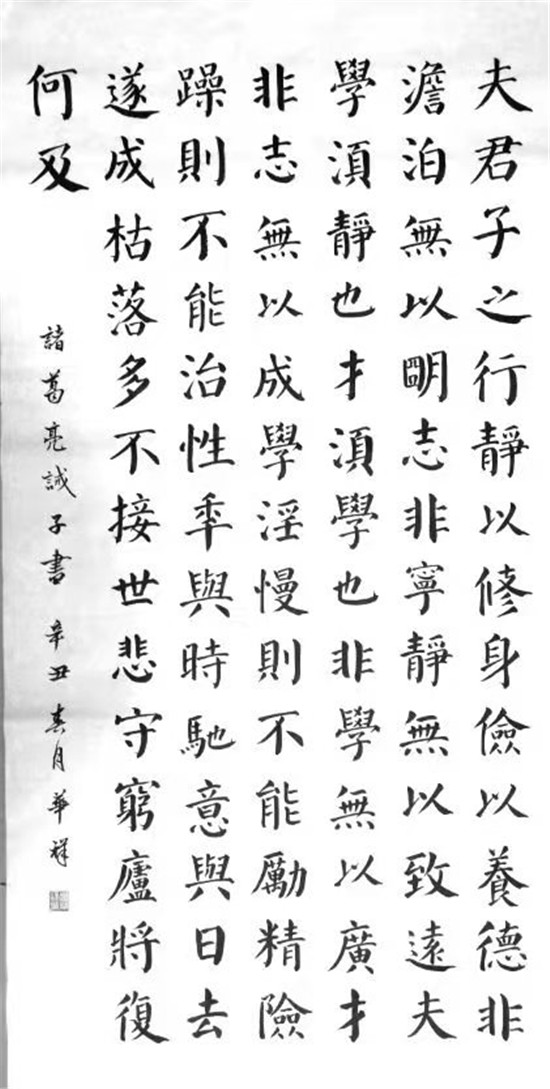 夫君子之行靜以修身儉以養德非
澹泊無以明志非寧靜無以致遠夫
學須靜也才須學也非學無以廣才
非志無以成學淫慢則不能勵精險
躁則不能治性年與時馳意與日去
遂成枯落多不接世悲守窮廬將復
何及
諸葛亮誡子書 辛丑春月華祥